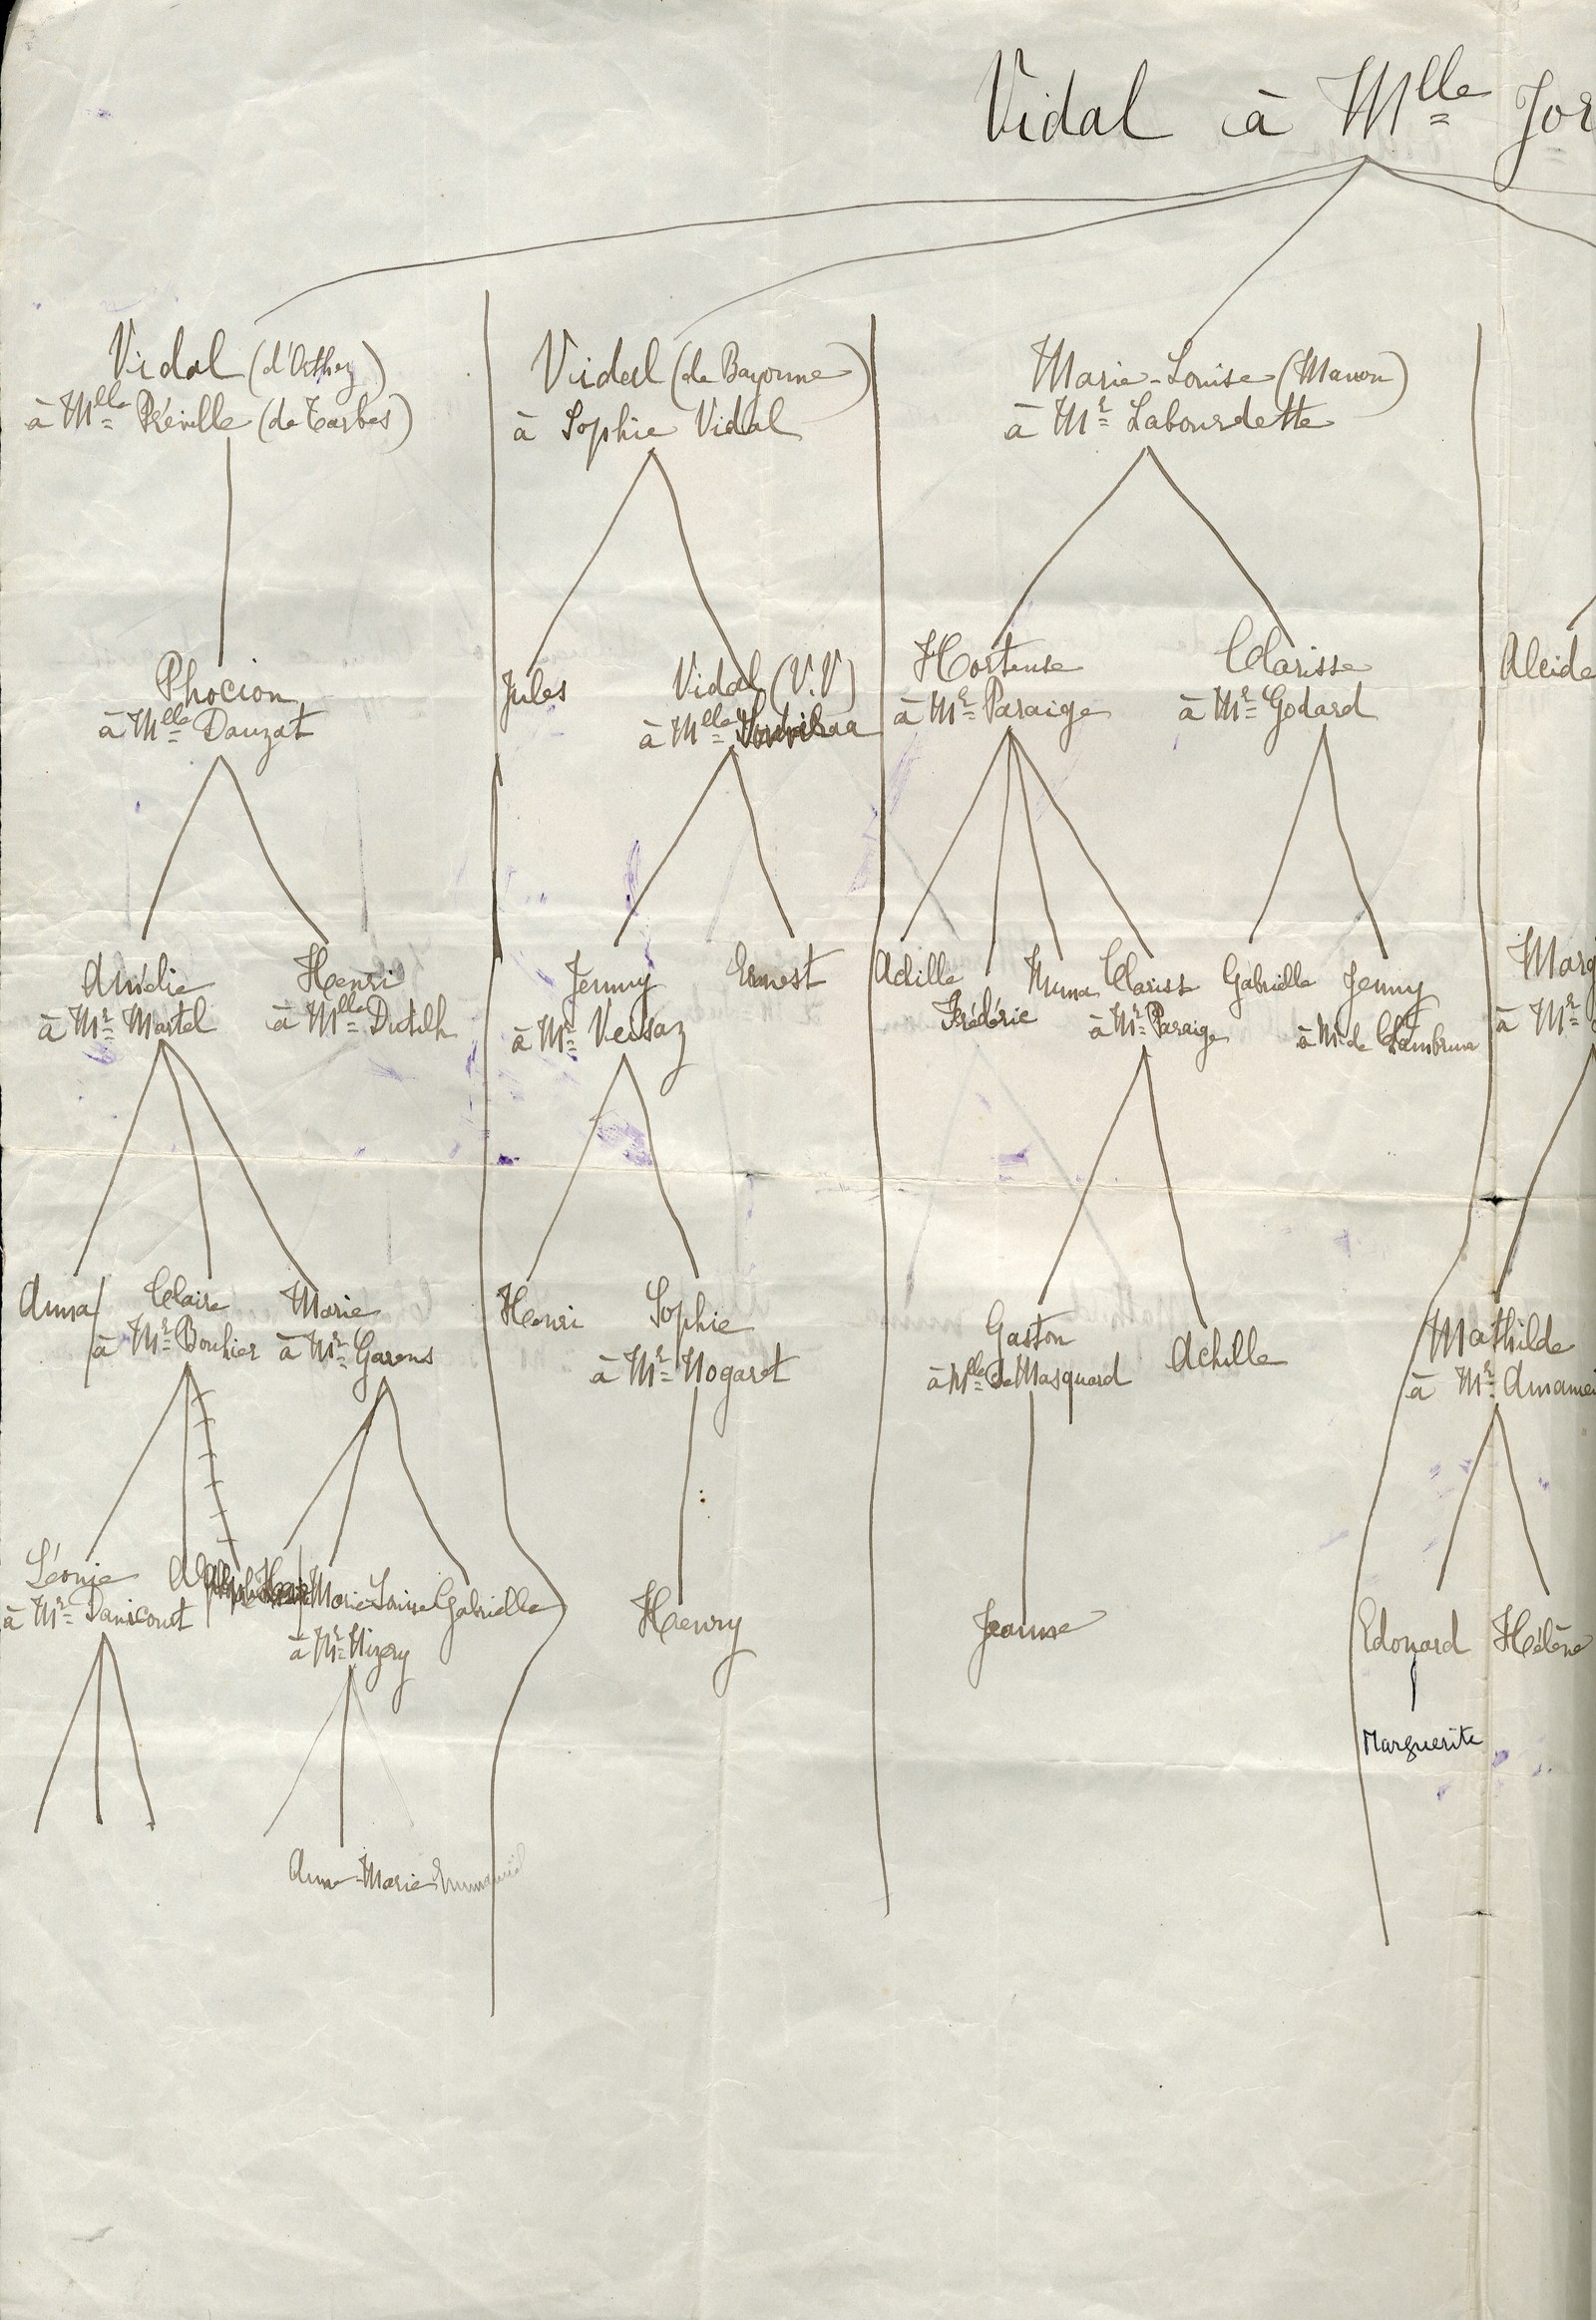 Vidal à Mlle Jor
Vidal (d'Orthez)
à Mlle Réville (de Tarbes)
Vidal (de Bayonne)
à Sophie Vidal
Marie-Louise (Manon)
à Mr Labourdette
Phocion
à Mlle Dauzat
Jules
Vidal (V.V)
à Mlle
Hortense
à Mr Paraige
Clarisse
à Mr Godard
Alcide
Amélie
à Mr Martel
Henri
à Mlle Dutilh
Jenny
à Mr Versaz
Ernest
Achille
Frédéric
Numa
Clariss
à Mr Paraige
Gabrielle
Jenny
à Mr de Chambrun
Marg
à Mr
Anna
Claire
à Mr Bouhier
Marie
à Mr Garens
Henri
Sophie
à Mr Nogaret
Gaston
à Mlle de Masquard
Achille
Mathilde
à Mr Amame
Léonie
à Mr Danicourt
Marie-Louise
à Mr Mizery
Gabrielle
Henry
Jeanne
Edouard
Hélène
Marguerite
Anne-Marie Emmanuel